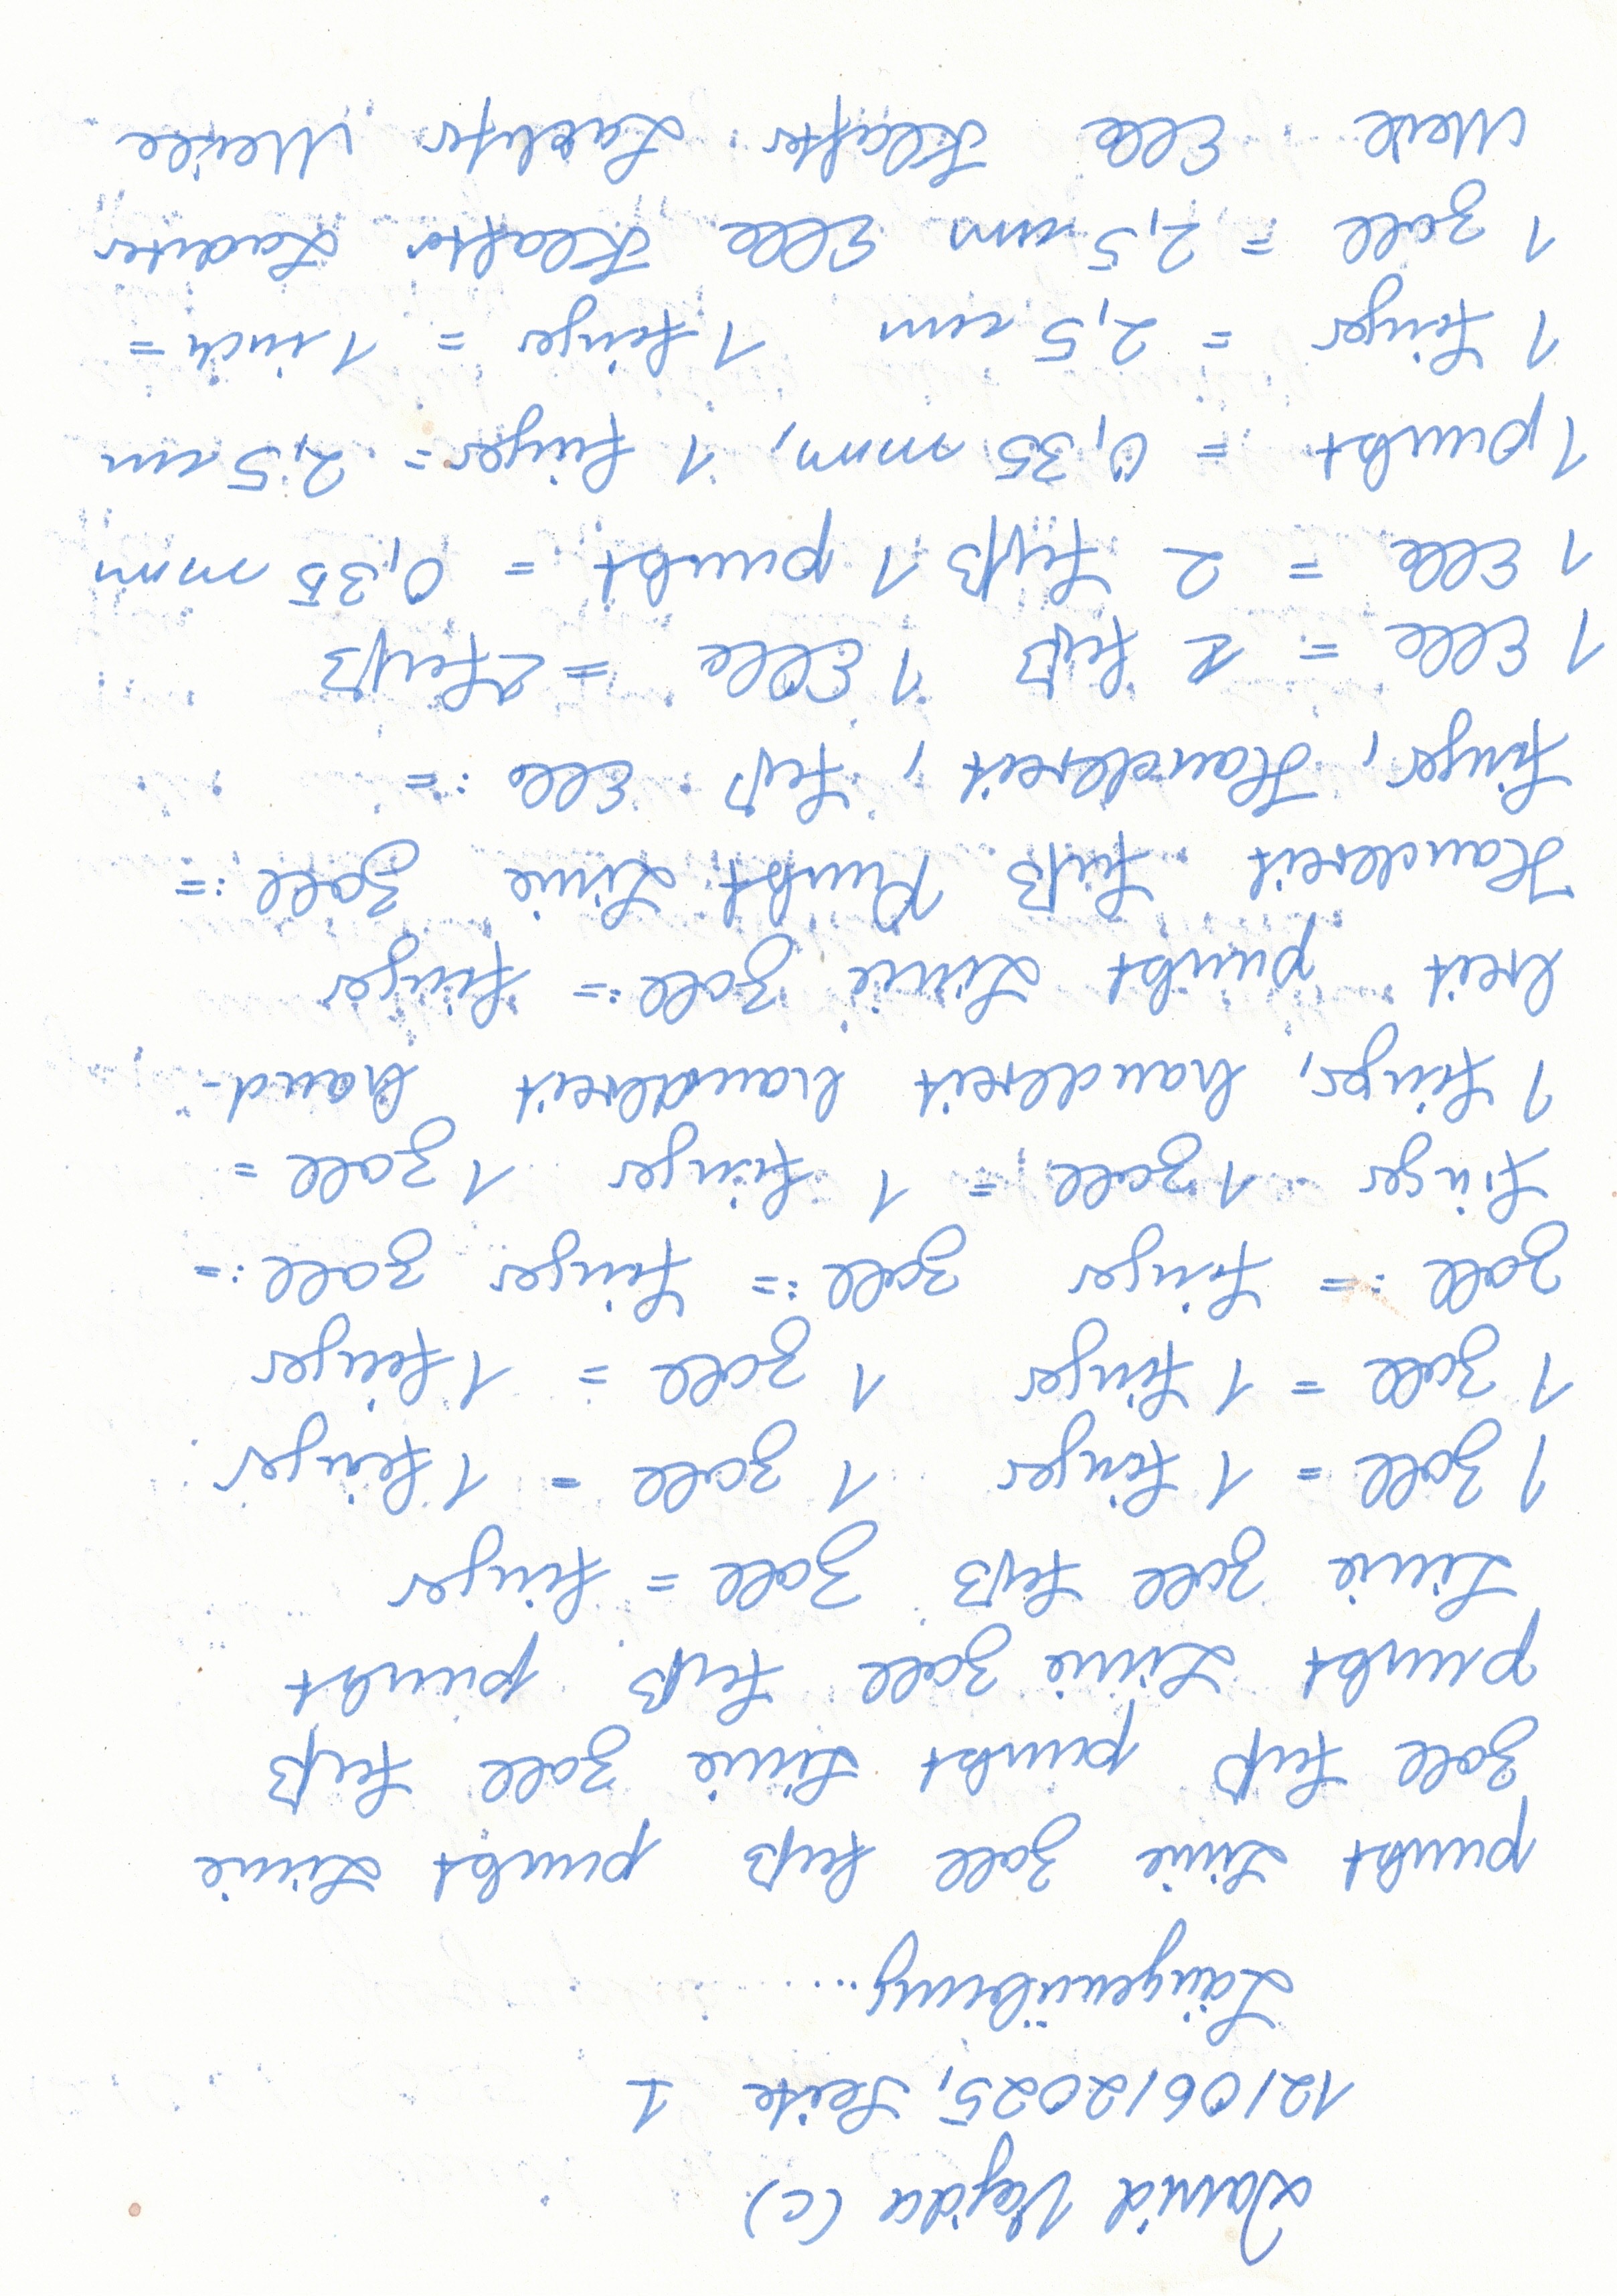 David Vajda (c)
12/06/2025, Seite 1
Längenübung....
punkt Linie Zoll Fuß punkt Linie
Zoll Fuß punkt Linie Zoll Fuß
punkt Linie Zoll Fuß punkt
Linie Zoll Fuß Zoll = Finger
1 Zoll = 1 Finger 1 Zoll = 1 Finger
1 Zoll = 1 Finger 1 Zoll = 1 Finger
Zoll := Finger Zoll := Finger Zoll :=
Finger 1 Zoll = 1 Finger 1 Zoll =
1 Finger, handbreit handbreit hand-
breit punkt Linie Zoll := Finger
Handbreit Fuß Punkt Linie Zoll :=
Finger, Handbreit, Fuß Elle :=
1 Elle = 2 Fuß 1 Elle = 2 Fuß
1 Elle = 2 Fuß 1 punkt = 0,35 mm
1 punkt = 0,35 mm, 1 Finger = 2,5 cm
1 Finger = 2,5 cm 1 Finger = 1 inch =
1 Zoll = 2,5 cm Elle Klafter Lachter
Meile Elle Klafter Lachter Meile